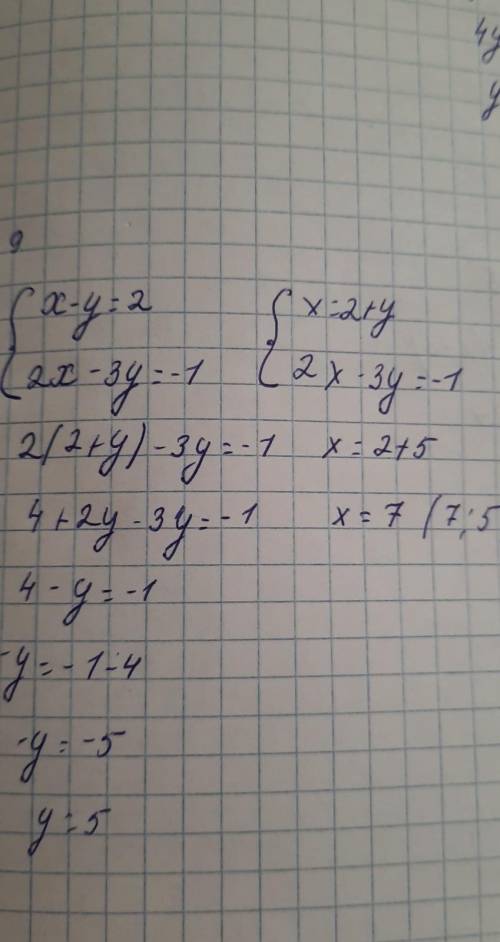 4y
y
9
{ x-y=2 { x=2+y
2x-3y=-1 2x-3y=-1
2(2+y)-3y=-1 x=2+5
4+2y-3y=-1 x=7 (7;5
4-y=-1
-y=-1-4
-y=-5
y=5